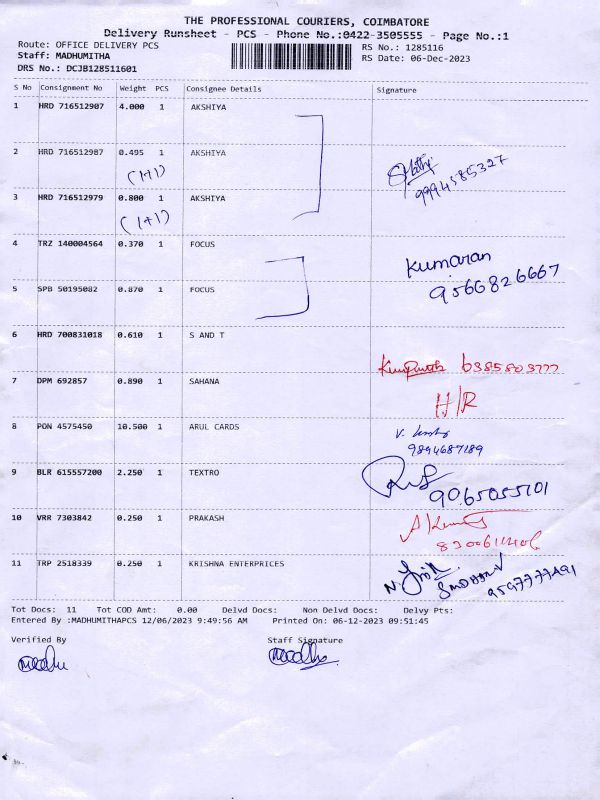 THE PROFESSIONAL COURIERS, COIMBATORE
Delivery Runsheet - PCS - Phone No.:0422-3505555 - Page No.:1
Route: OFFICE DELIVERY PCS RS No.: 1285116
Staff: MADHUMITHA RS Date: 06-Dec-2023
DRS No.: DCJB128511601
S No Consignment No Weight PCS Consignee Details Signature
1 HRD 716512907 4.000 1 AKSHIYA
2 HRD 716512987 0.495 1 AKSHIYA
(1+1) 9994585327
3 HRD 716512979 0.800 1 AKSHIYA
(1+1)
4 TRZ 140004564 0.370 1 FOCUS Kumaran
9566826667
5 SPB 50195082 0.870 1 FOCUS
6 HRD 700831018 0.610 1 S AND T
6385803777
7 DPM 692857 0.890 1 SAHANA H/R
8 PON 4575450 10.500 1 ARUL CARDS
9894687189
9 BLR 615557200 2.250 1 TEXTRO
9065055101
10 VRR 7303842 0.250 1 PRAKASH
11 TRP 2518339 0.250 1 KRISHNA ENTERPRICES
Tot Docs: 11 Tot COD Amt: 0.00 Delvd Docs: Non Delvd Docs: Delvy Pts:
Entered By :MADHUMITHAPCS 12/06/2023 9:49:56 AM Printed On: 06-12-2023 09:51:45
Verified By Staff Signature